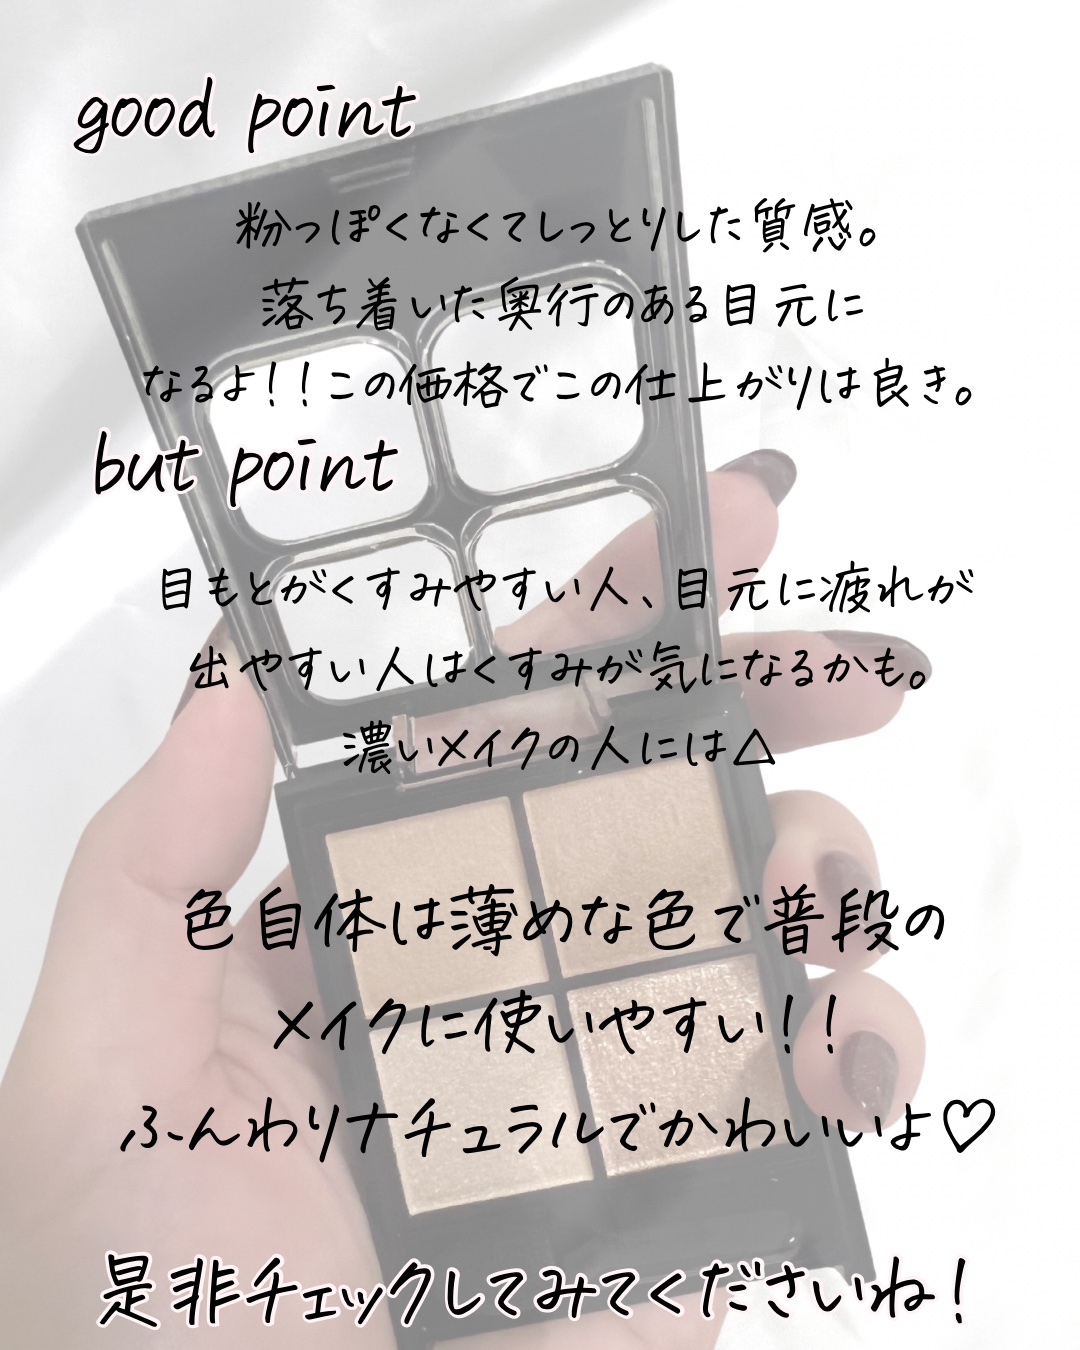 good point
粉っぽくなくてしっとりした質感。
落ち着いた奥行のある目元に
なるよ！！この価格でこの仕上がりは良き。
but point
目もとがくすみやすい人、目元に疲れが
出やすい人はくすみが気になるかも。
濃いメイクの人には△
色自体は薄めな色で普段の
メイクに使いやすい！！
ふんわりナチュラルでかわいいよ♡
是非チェックしてみてくださいね！